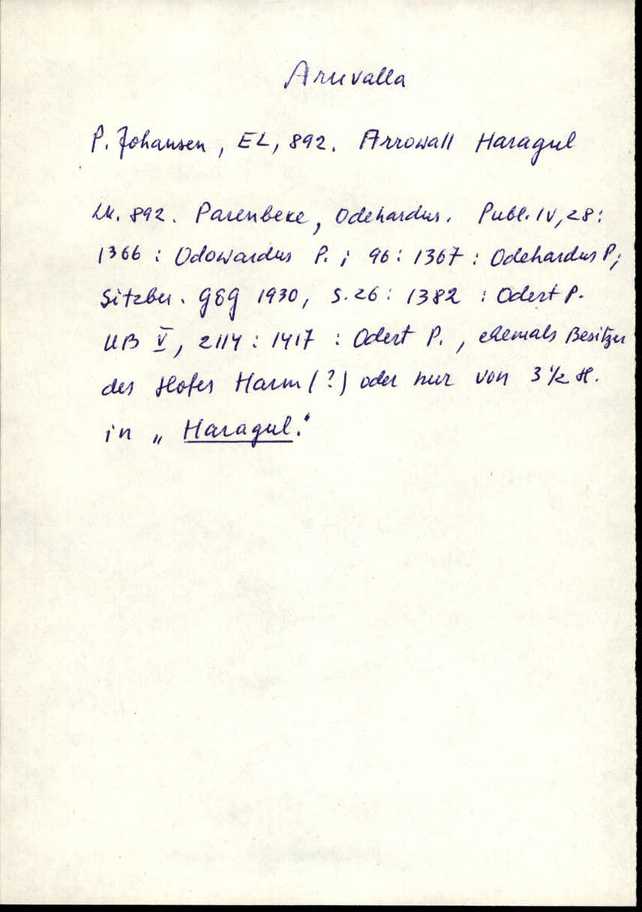 Aruvalla
P. Johansen, EL, 892. Arrowall Haragul
Lk. 892. Parenbeke, Odehardus. Publ. IV, 28:
1366 : Odowardus P. ; 96: 1367 : Odehardus P;
Sitzber. GEG 1930, S. 26: 1382 : Odert P.
UB V, 2114: 1417 : Odert P., ehemals Besitzer
des Hofes Harm (?) oder nur von 3 1/2 H.
in „Haragul."